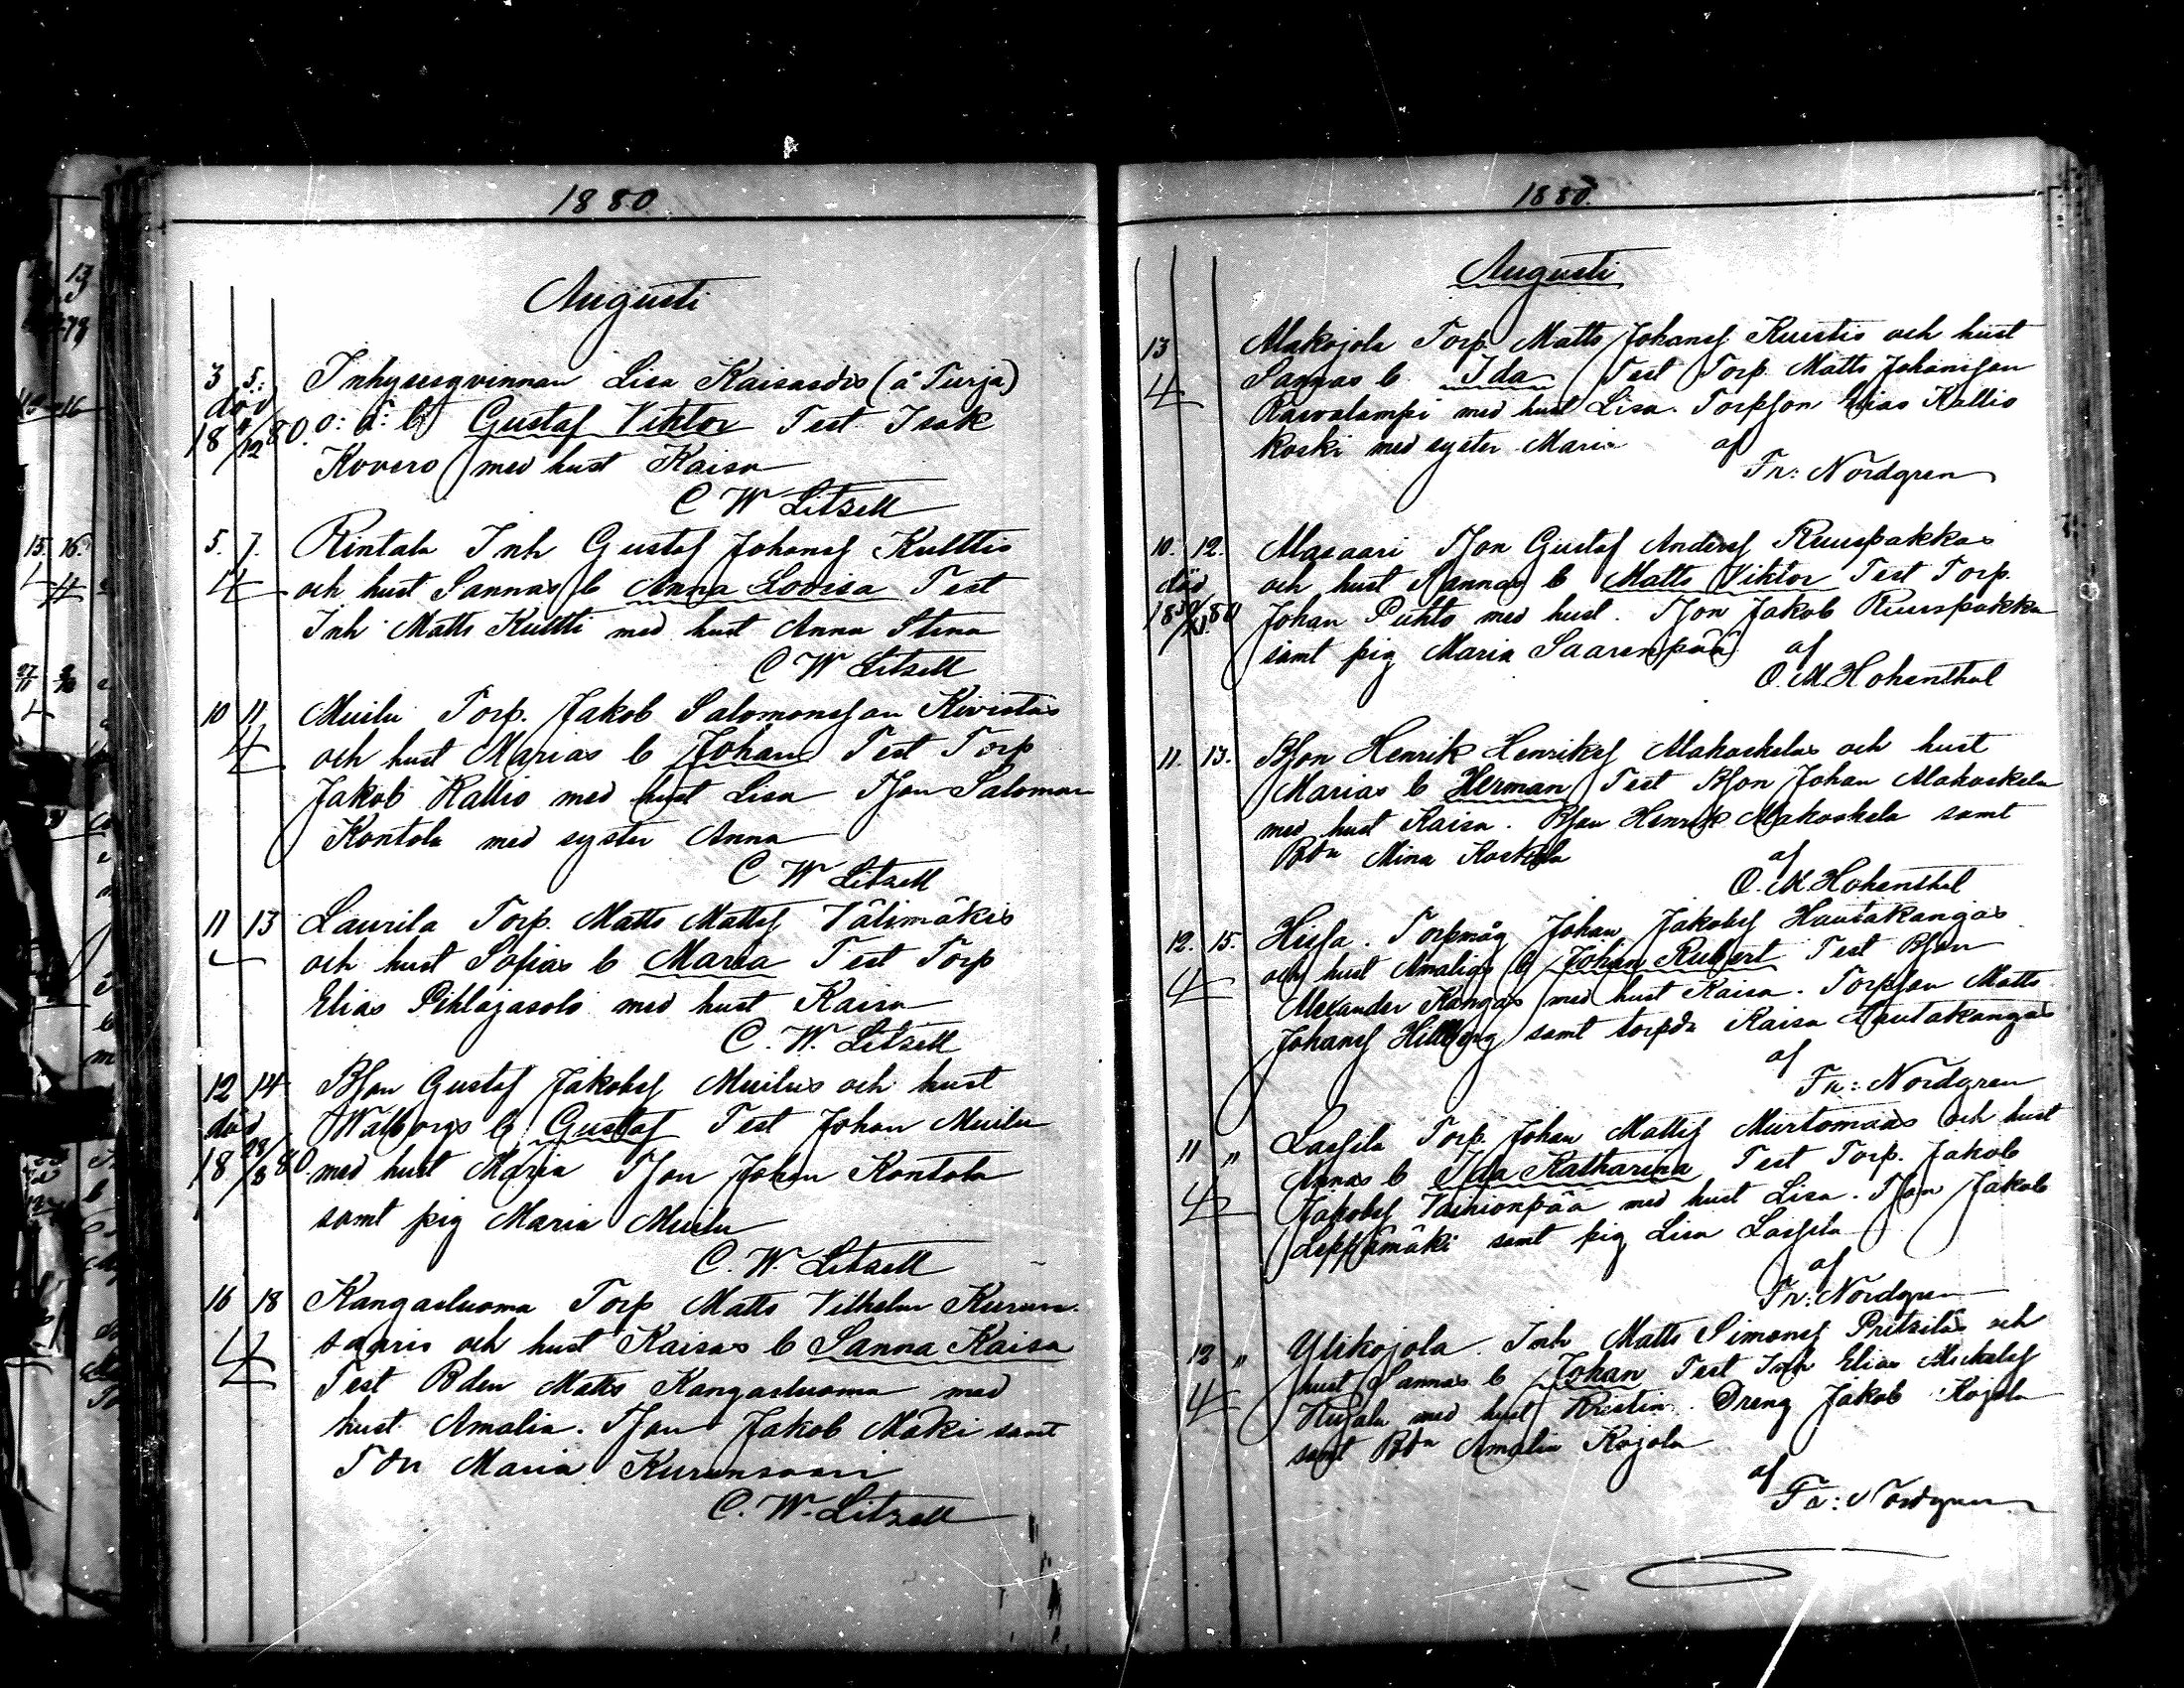 1880.
Augusti
3 5. Inhysesqvinnan Lisa Kaisasdrs (å Turja)
död o: ä: b Gustaf Viktor Test Isak
18 /12 80. Kovero med hust Kaisa
C W Litzell
5. 7. Rintala Inh Gustaf Johansf Kulttis
och hust Sannas b Anna Lovisa Test
Inh Matts Kultti med hust Anna Stina
C W Litzell
10 11 Muilu Torp. Jakob Salomonsson Kivistös
och hust Marias b Johan Test Torp
Jakob Kallio med hust Lisa TSon Salomon
Kontola med syster Anna
C W Litzell
11 13 Laurila Torp. Matts Mattsf Välimäkis
och hust Sofias b Maria Test Torp
Elias Pihlajasalo med hust Kaisa
C. W. Litzell
12 14 BSon Gustaf Jakobsf Muilus och hust
död Walborgs b Gustaf Test Johan Muilu
18 28/8 80. med hust Maria TSon Johan Kontola
samt pig Maria Muilu
C. W. Litzell
16 18 Kangasluoma Torp Matts Vilhelm Kurun-
saaris och hust Kaisas b Sanna Kaisa
Test Bden Matts Kangasluoma med
hust Amalia. TSon Jakob Mäki samt
Tdn Maria Kurunsaari
C. W. Litzell
1880.
Augusti
13 Alakojola Torp. Matts Johansf Kurtis och hust
Sannas b Ida Test Torp. Matts Johansson
Rasvalampi med hust Lisa. TorpSon Elias Kallio
koski med syster Maria af
Fr: Nordgren
10. 12. Alasaari TSon Gustaf Andersf Ruuspakkas
död och hust Sannas b Matts Viktor Test Torp.
18 80 Johan Puhto med hust. TSon Jakob Ruuspakka
samt pig Maria Saarenpää af
O. M. Hohenthal
11. 13. BSon Henrik Henriksf Alakoskelas och hust
Marias b Herman Test BSon Johan Alakoskela
med hust Kaisa. BSon Henrik Alakoskela samt
Bdn Mina Koskela af
O. M. Hohenthal
12. 15. Hissa. Torpmåg Johan Jakobsf Hautakangas
och hust Amalias b Johan Robert Test BSon
Alexander Kangas med hust Kaisa. TorpSon Matts
Johansf Hillberg samt torpdn Kaisa Hautakangas
af
Fr: Nordgren
11 " Lassila Torp. Johan Mattsf Murtomaas och hust
Annas b Ida Katharina Test Torp. Jakob
Jakobsf Vainionpää med hust Lisa. TSon Jakob
Leppämäki samt pig Lisa Lassila
af
Fr: Nordgren
12 " Ylikojola. Inh Matts Simonsf Pritsiläs och
hust Sannas b Johan Test Inh Elias Michelsf
med hust Kristin. Dreng Jakob Kojola
samt Bdn Amalia Kojola
af
Fr: Nordgren